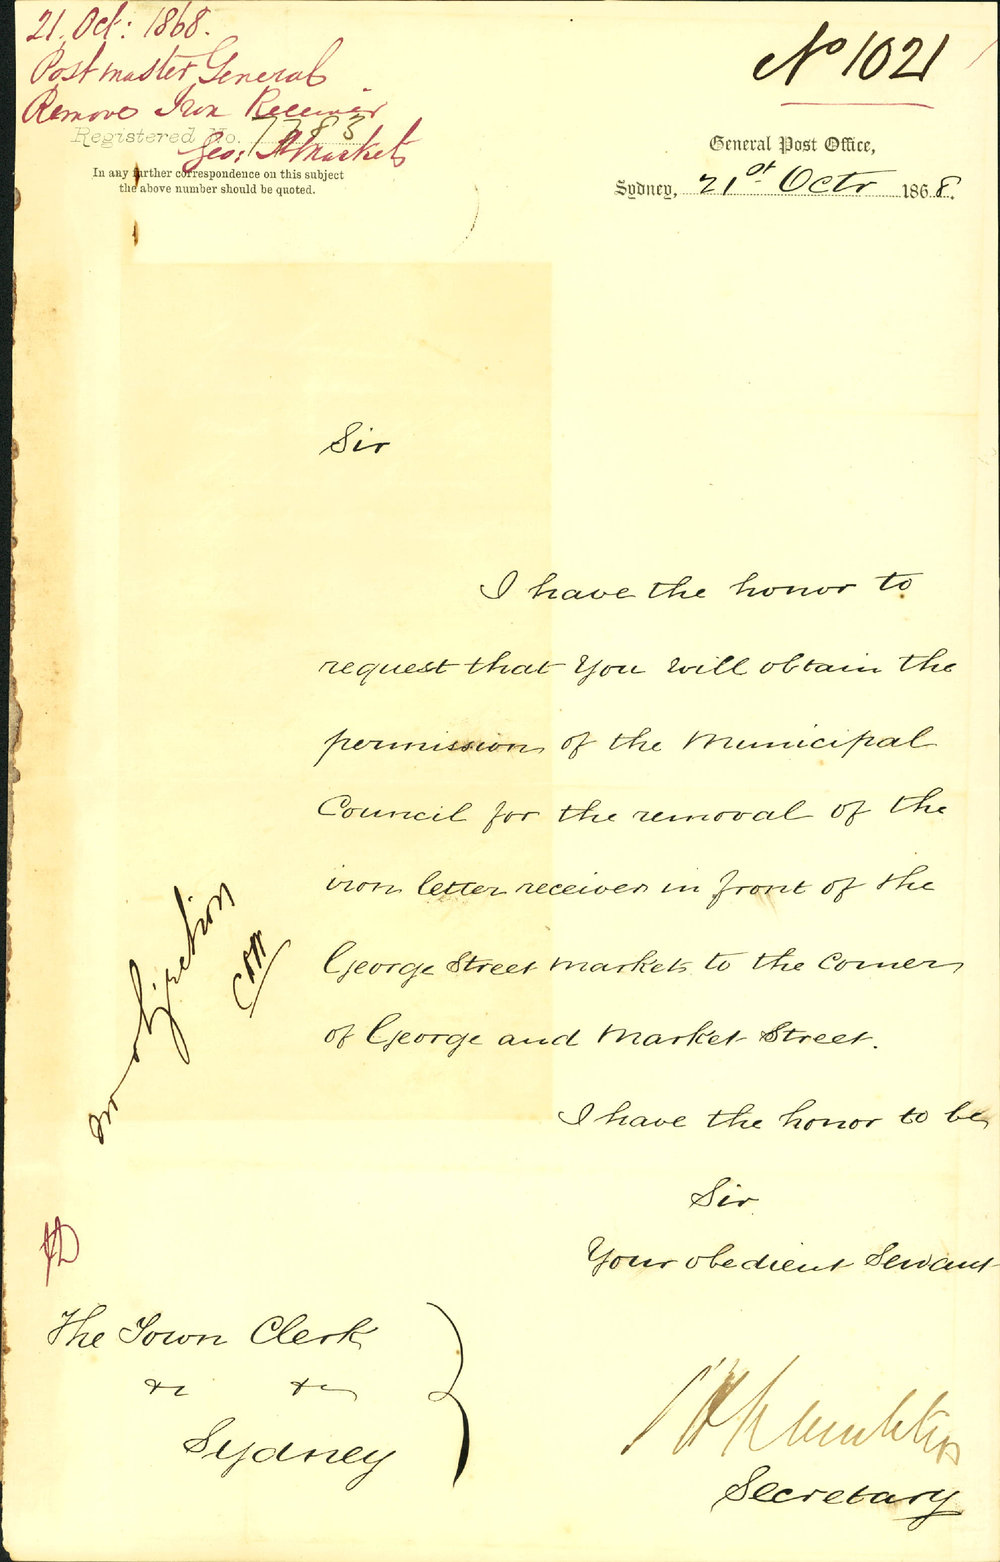 21. Oct: 1868.
Postmaster General
Remove Iron Receiver
Geo: St Markets
Registered No. 7783
In any further correspondence on this subject
the above number should be quoted.
No 1021
General Post Office,
Sydney, 21st Octr 1868.
Sir
I have the honor to
request that You will obtain the
permission of the Municipal
Council for the removal of the
iron letter receiver in front of the
George Street Markets to the corner
of George and Market Street.
I have the honor to be
Sir
Your obedient Servant
Secretary
no objection
The Town Clerk
&c &c
Sydney